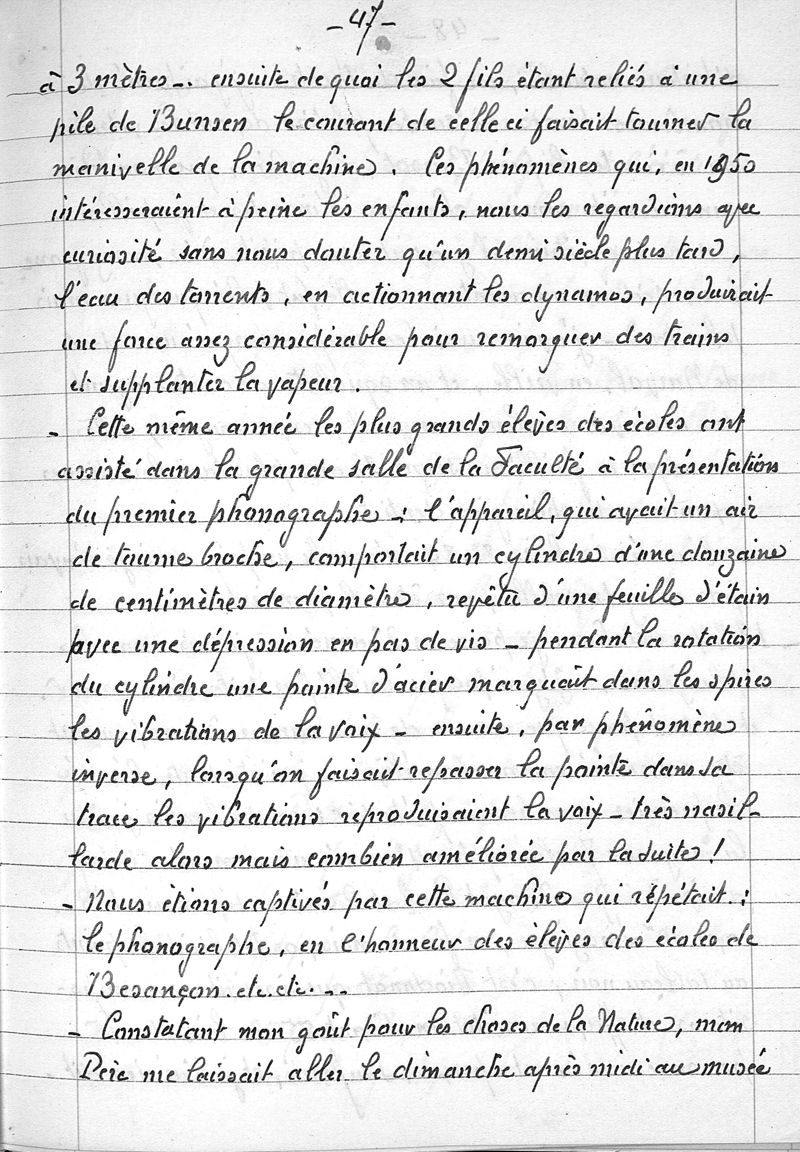 - 47 -
à 3 mètres -. ensuite de quoi les 2 fils étant reliés à une
pile de Bunsen le courant de celle ci faisait tourner la
manivelle de la machine. Ces phénomènes qui, en 1950
intéresseraient à peine les enfants, nous les regardions avec
curiosité sans nous douter qu'un demi siècle plus tard,
l'eau des torrents, en actionnant les dynamos, produirait
une force assez considérable pour remorquer des trains
et supplanter la vapeur.
- Cette même année les plus grands élèves des écoles ont
assisté dans la grande salle de la Faculté à la présentation
du premier phonographe -: l'appareil, qui avait un air
de tourne broche, comportait un cylindre d'une douzaine
de centimètres de diamètre, revêtu d'une feuille d'étain
avec une dépression en pas de vis - pendant la rotation
du cylindre une pointe d'acier marquait dans les spires
les vibrations de la voix - ensuite, par phénomène
inverse, lorsqu'on faisait repasser la pointe dans sa
trace les vibrations reproduisaient la voix - très nasil-
larde alors mais combien améliorée par la suite !
- Nous étions captivés par cette machine qui répétait. :
le phonographe, en l'honneur des élèves des écoles de
Besançon. etc. etc. --
- Constatant mon goût pour les choses de la Nature, mon
Père me laissait aller le dimanche après midi au musée